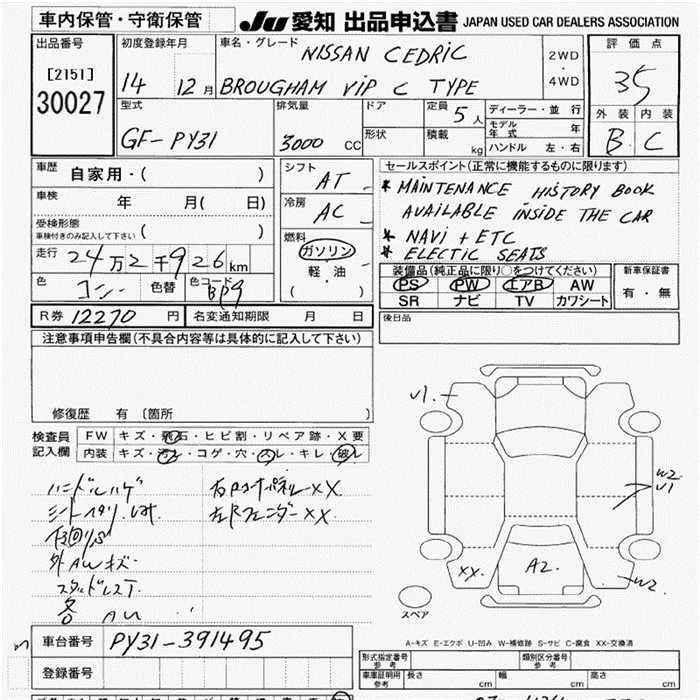 車内保管・守衛保管
JU 愛知 出品申込書 JAPAN USED CAR DEALERS ASSOCIATION
出品番号
[2151]
30027
初度登録年月
14 12月
車名・グレード
NISSAN CEDRIC
BROUGHAM VIP C TYPE
2WD
・
4WD
評価点
35
外装 内装
B C
型式
GF-PY31
排気量
3000 CC
ドア
形状
定員 5人
積載 kg
ディーラー・並行
モデル年式 年
ハンドル 左・右
車歴 自家用・( )
車検 年 月( 日)
受検形態
車検付きのみ記入して下さい ( )
走行 24万2千926km
色 色替 色コード
BP9
R券 12270円 名変通知期限 月 日
シフト AT
冷房 AC
燃料
ガソリン
軽・油
( )
セールスポイント(正常に機能するものに限ります)
* MAINTENANCE HISTORY BOOK
AVAILABLE INSIDE THE CAR
* NAVI + ETC
* ELECTIC SEATS
装備品(純正品に限り○をつけてください)
PS PW エアB AW
SR ナビ TV カワシート
新車保証書
有・無
後日品
注意事項申告欄(不具合内容等は具体的に記入して下さい)
修復歴 有〔箇所 〕
検査員記入欄
FW キズ・飛石・ヒビ割・リペア跡・X要
内装 キズ・汚レ・コゲ・穴・スレ・キレ・破レ
ハンドルハゲ
外AWキズ
スタッドレスT
各 AW
V1
W2
V1
XX
A2
W2
スペア
A-キズ E-エクボ U-凹み W-補修跡 S-サビ C-腐食 XX-交換済
車台番号 PY31-391495
登録番号
形式指定番号 参考
類別区分番号 参考
車庫証明用 参考
長さ cm 幅 cm 高さ cm